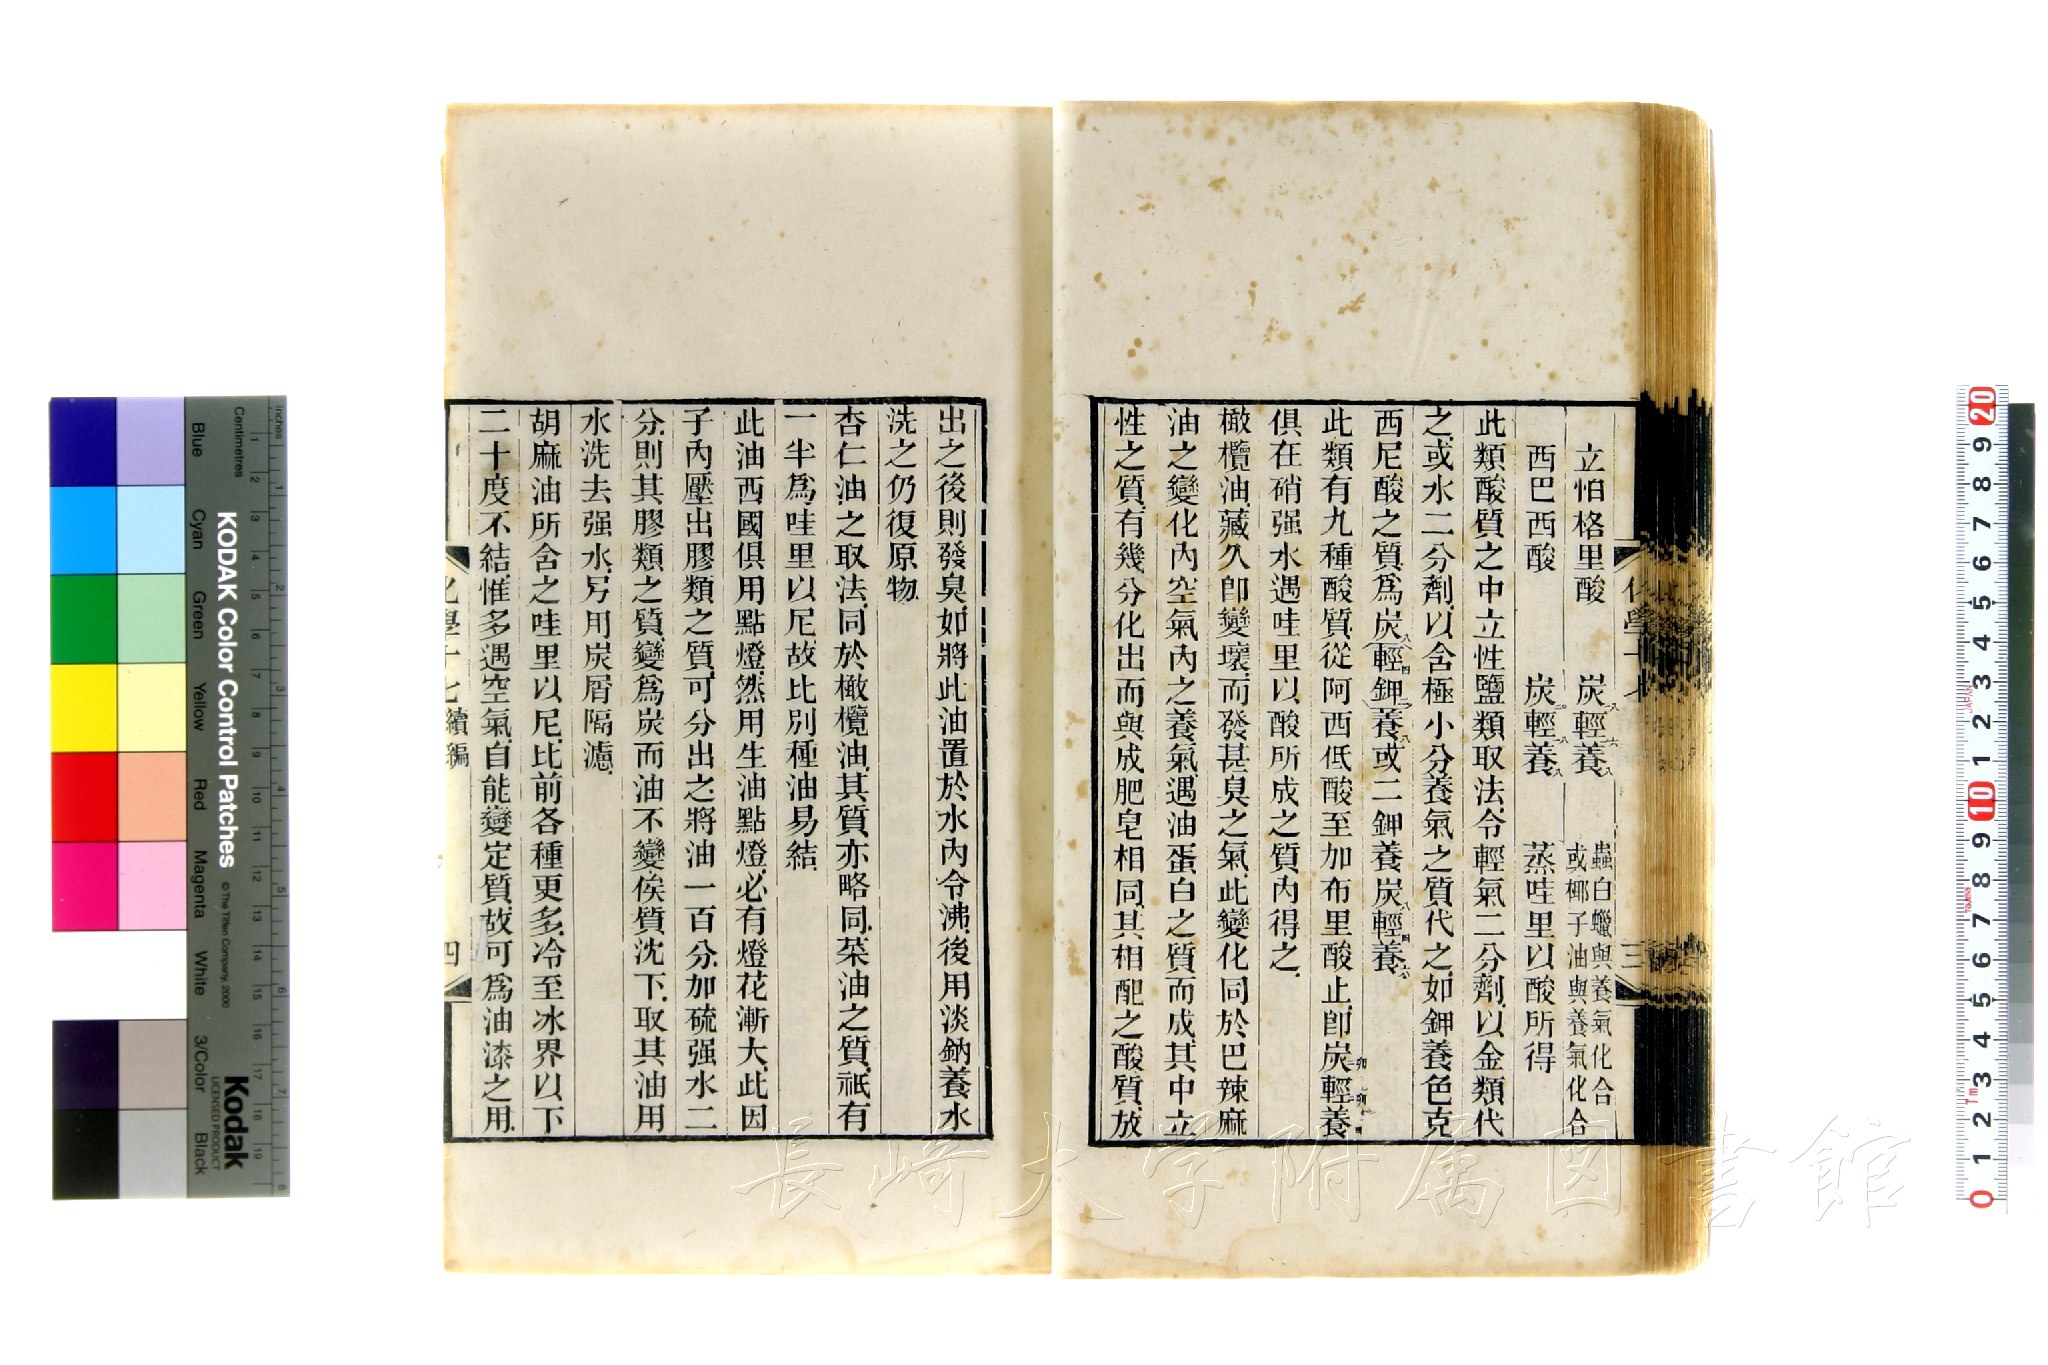 立怕格里酸　炭輕養　蟲白蠟與養氣化合
或椰子油與養氣化合
西巴西酸　炭輕養　蒸哇里以酸所得
此類酸質之中立性鹽類取法令輕氣二分劑以金類代
之或水二分劑以含極小分養氣之質代之如鉀養色克
西尼酸之質爲炭八輕四鉀二養八或二鉀養炭八輕四養六
此類有九種酸質從阿西低酸至加布里酸止卽炭輕養
俱在硝强水遇哇里以酸所成之質內得之
橄欖油藏久卽變壞而發甚臭之氣此變化同於巴辣麻
油之變化內空氣內之養氣遇油蛋白之質而成其中立
性之質有幾分化出而與成肥皂相同其相配之酸質放
化學十七
三
出之後則發臭如將此油置於水內令沸後用淡鈉養水
洗之仍復原物
杏仁油之取法同於橄欖油其質亦略同菜油之質祇有
一半爲哇里以尼故比別種油易結
此油西國俱用點燈然用生油點燈必有燈花漸大此因
子內壓出膠類之質可分出之將油一百分加硫强水二
分則其膠類之質變爲炭而油不變俟質沈下取其油用
水洗去强水另用炭屑隔濾
胡麻油所含之哇里以尼比前各種更多冷至冰界以下
二十度不結惟多遇空氣自能變定質故可爲油漆之用
化學十七續編
四
長崎大学附属図書館
KODAK Color Control Patches
© The Tiffen Company, 2000
Kodak
LICENSED PRODUCT
Inches
Centimetres
Blue
Cyan
Green
Yellow
Red
Magenta
White
3/Color
Black